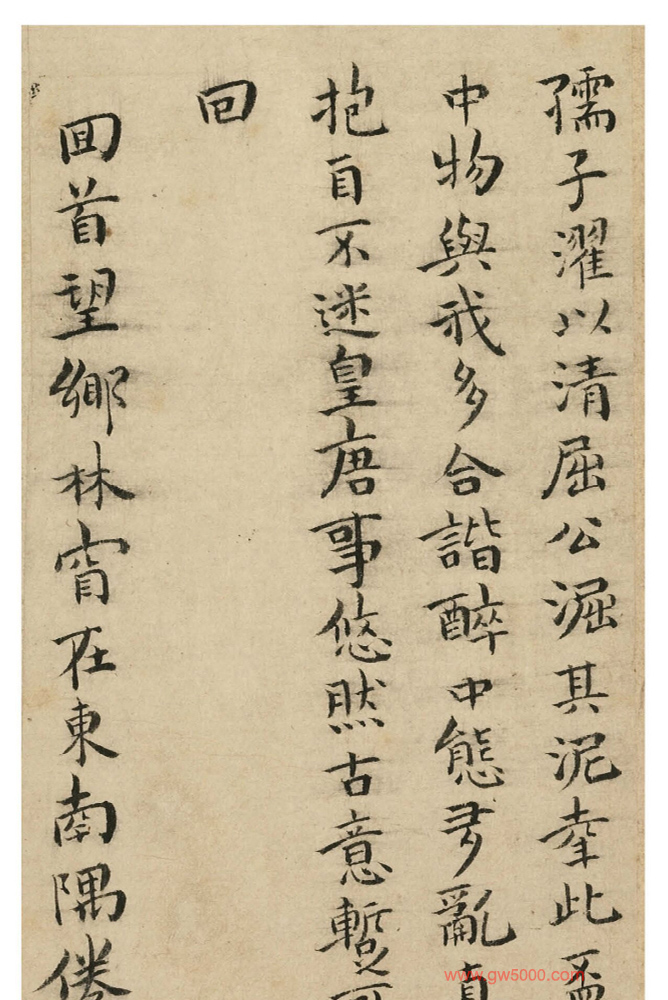 孺子濯以清屈公淈其泥幸此盃
中物與我多合諧醉中態多亂真
抱自不迷皇唐事悠然古意暫可
回
回首望鄉林宵在東南隅倦
www.gw5000.com